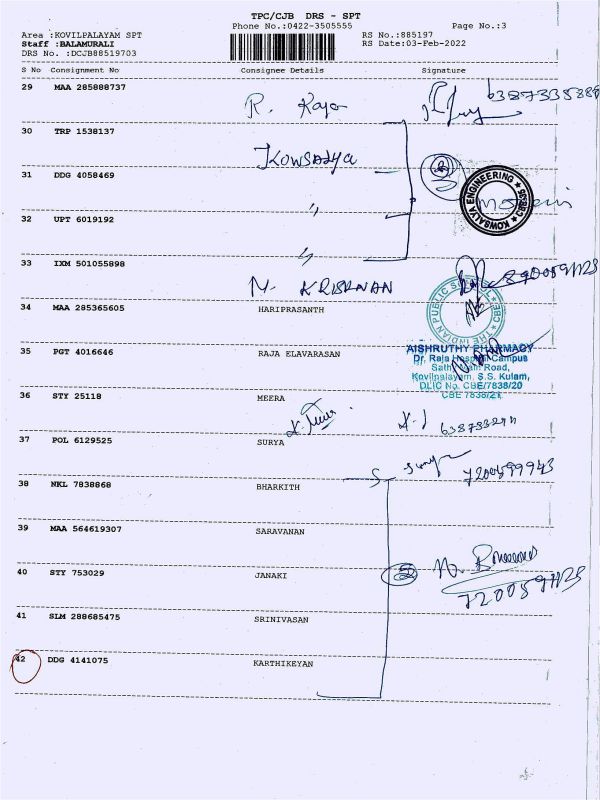 TPC/CJB DRS - SPT
Phone No.:0422-3505555 Page No.:3
Area :KOVILPALAYAM SPT RS No.:885197
Staff :BALAMURALI RS Date:03-Feb-2022
DRS No. :DCJB88519703
S No Consignment No Consignee Details Signature
29 MAA 285888737
R. Raja
30 TRP 1538137
Kowsalya
31 DDG 4058469
KOWSALYA ENGINEERING
32 UPT 6019192
"
33 IXM 501055898
"
M. KRISHNAN
34 MAA 285365605 HARIPRASANTH
THE INDIAN PUBLIC CBE
35 PGT 4016646 RAJA ELAVARASAN
AISHRUTHY PHARMACY
Dr. Raja Hospital Campus
Sathy Main Road,
Kovilpalayam, S.S. Kulam,
DLIC No. CBE/7838/20
CBE 7838/21
36 STY 25118 MEERA
37 POL 6129525 SURYA
Surya
7200599943
38 NKL 7838868 BHARKITH
39 MAA 564619307 SARAVANAN
40 STY 753029 JANAKI
41 SLM 288685475 SRINIVASAN
42 DDG 4141075 KARTHIKEYAN